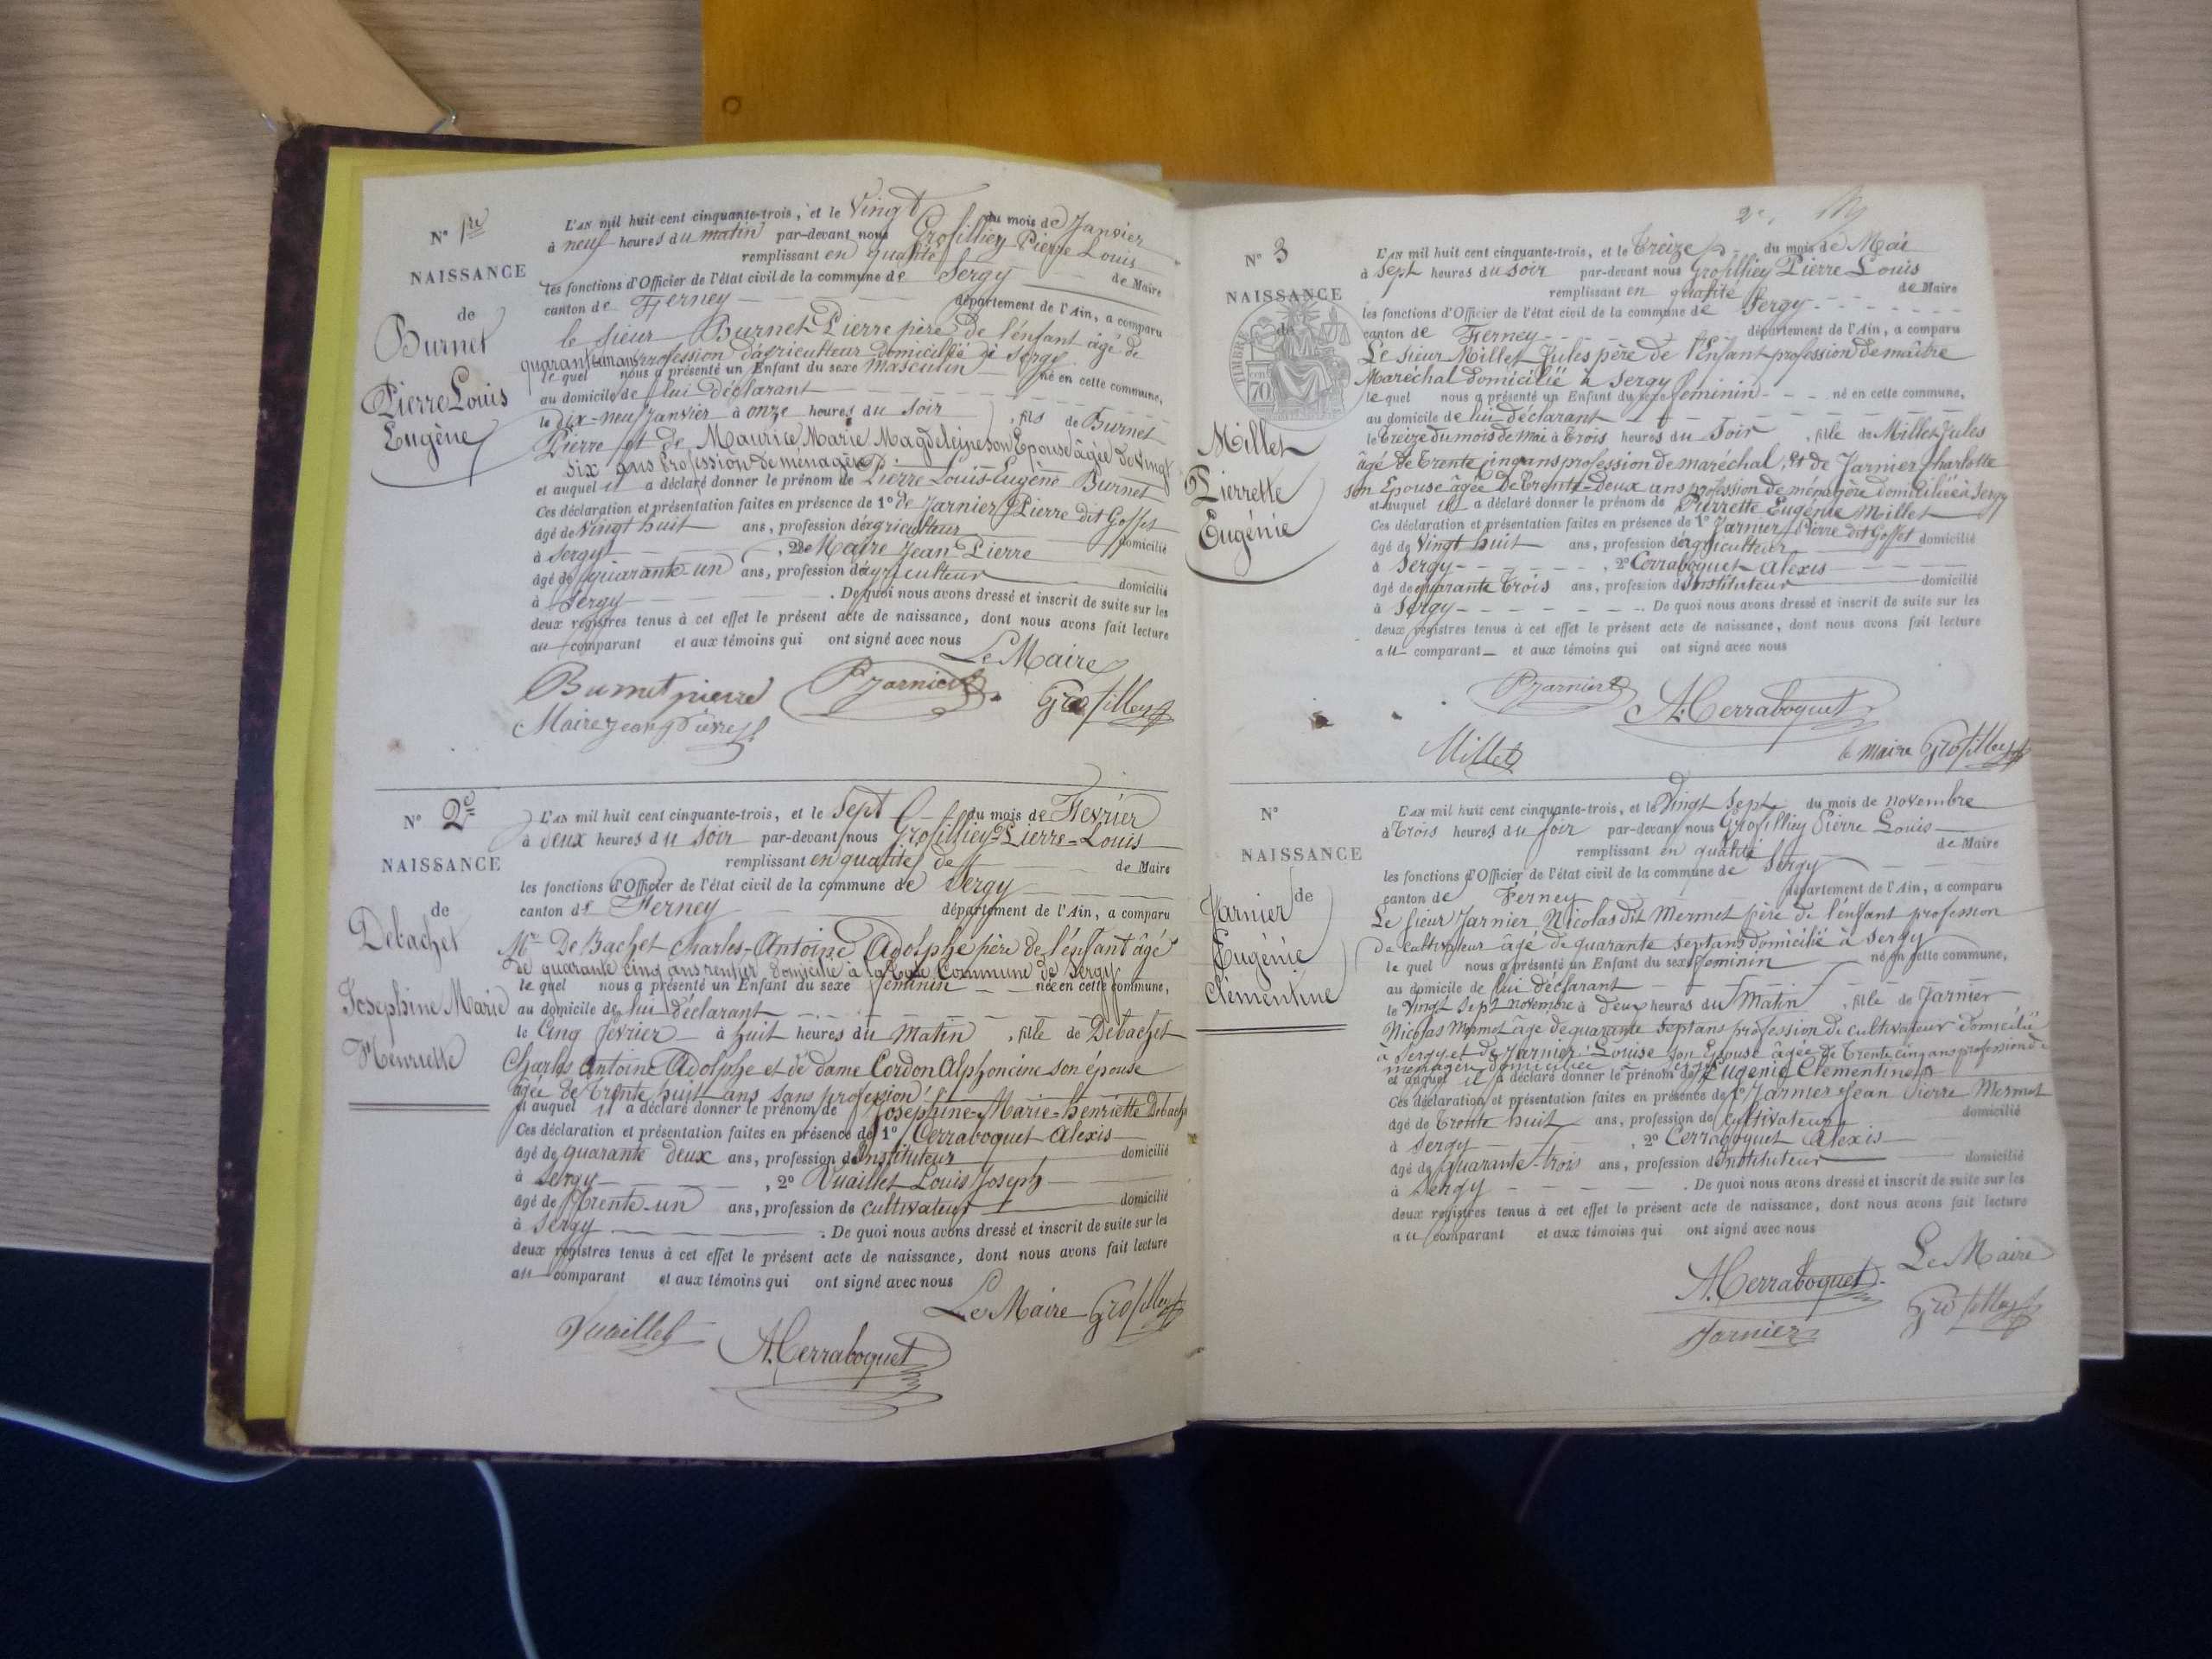 N° 1re
NAISSANCE
de
Burnet
Pierre Louis
Eugène
L'AN mil huit cent cinquante-trois, et le Vingt du mois de Janvier
à neuf heures du matin par-devant nous Grosfilley Pierre Louis
remplissant en qualité de Maire
les fonctions d'Officier de l'état civil de la commune de Sergy
canton de Ferney département de l'Ain, a comparu
le sieur Burnet Pierre père de l'enfant âgé de
quarante ans profession d'agriculteur domicilié à Sergy
le quel nous a présenté un Enfant du sexe masculin né en cette commune,
au domicile de lui déclarant
le dix-neuf Janvier à onze heures du soir, fils de Burnet
Pierre et de Maurice Marie Magdeleine son Epouse âgée de vingt
six ans profession de ménagère
et auquel il a déclaré donner le prénom de Pierre Louis Eugène Burnet
Ces déclaration et présentation faites en présence de 1° de Jarnier Pierre dit Gosset
âgé de vingt huit ans, profession d'agriculteur domicilié
à Sergy, 2° de Maire Jean-Pierre
âgé de quarante-un ans, profession d'agriculteur domicilié
à Sergy. De quoi nous avons dressé et inscrit de suite sur les
deux registres tenus à cet effet le présent acte de naissance, dont nous avons fait lecture
au comparant et aux témoins qui ont signé avec nous
Le Maire
Burnet pierre P Jarnier Grosfilley
Maire Jean Pierre
N° 2e
NAISSANCE
de
Debachet
Josephine Marie
Henriette
L'AN mil huit cent cinquante-trois, et le Sept du mois de Fevrier
à deux heures du soir par-devant nous Grosfilliey Pierre-Louis
remplissant en qualité de de Maire
les fonctions d'Officier de l'état civil de la commune de Sergy
canton de Ferney département de l'Ain, a comparu
Mr De Bachet Charles-Antoine Adolphe père de l'énfant âgé
de quarante cinq ans rentier domicilié à Commune de Sergy
le quel nous a présenté un Enfant du sexe féminin née en cette commune,
au domicile de lui déclarant
le Cinq février à huit heures du Matin, fille de Debachet
Charles Antoine Adolphe et de dame Cordon Alphoncine son épouse
âgée de trente huit ans sans profession
et auquel il a déclaré donner le prénom de Josephine-Marie-henriette Debachet
Ces déclaration et présentation faites en présence de 1° Cerraboquet Alexis
âgé de quarante deux ans, profession d'Instituteur domicilié
à Sergy, 2° Vuaillet Louis Joseph
âgé de Trente-un ans, profession de cultivateur domicilié
à Sergy. De quoi nous avons dressé et inscrit de suite sur les
deux registres tenus à cet effet le présent acte de naissance, dont nous avons fait lecture
au comparant et aux témoins qui ont signé avec nous
Le Maire Grosfilley
Vuaillet A. Cerraboquet
N° 3
NAISSANCE
de
TIMBRE
70
Millet
Pierrette
Eugénie
L'AN mil huit cent cinquante-trois, et le treize du mois de Mai
à sept heures du soir par-devant nous Grosfilliey Pierre Louis
remplissant en qualité de Maire
les fonctions d'Officier de l'état civil de la commune de Sergy
canton de Ferney département de l'Ain, a comparu
Le sieur Millet Jules père de l'Enfant profession de maître
Maréchal domicilié à Sergy
le quel nous a présenté un Enfant du sexe féminin né en cette commune,
au domicile de lui déclarant
le treize du mois de mai à trois heures du Soir, fille de Millet Jules
âgé de trente cinq ans profession de maréchal, et de Jarnier Charlotte
son Epouse âgée de trente-deux ans profession de ménagère domiciliée à Sergy
et auquel il a déclaré donner le prénom de Pierrette Eugénie Millet
Ces déclaration et présentation faites en présence de 1° Jarnier Pierre dit Gosset
âgé de vingt huit ans, profession d'agriculteur domicilié
à Sergy, 2° Cerraboquet Alexis
âgé de quarante trois ans, profession d'Instituteur domicilié
à Sergy. De quoi nous avons dressé et inscrit de suite sur les
deux registres tenus à cet effet le présent acte de naissance, dont nous avons fait lecture
au comparant et aux témoins qui ont signé avec nous
P Jarnier A. Cerraboquet
Millet le maire Grosfilley
N°
NAISSANCE
de
Jarnier
Eugénie
Clémentine
L'AN mil huit cent cinquante-trois, et le Vingt Sept du mois de novembre
à trois heures du soir par-devant nous Grosfilliey Pierre Louis
remplissant en qualité de Maire
les fonctions d'Officier de l'état civil de la commune de Sergy
canton de Ferney département de l'Ain, a comparu
Le sieur Jarnier Nicolas dit Mermet père de l'enfant profession
de cultivateur âgé de quarante sept ans domicilié à Sergy
le quel nous a présenté un Enfant du sexe féminin né en cette commune,
au domicile de lui déclarant
le vingt sept novembre à deux heures du Matin, fille de Jarnier
Nicolas Mermet âgé de quarante sept ans profession de cultivateur domicilié
à Sergy et de Jarnier Louise son Epouse âgée de trente cinq ans profession de
ménagère domiciliée Sergy
et auquel il a déclaré donner le prénom de Eugénie Clémentine
Ces déclaration et présentation faites en présence de 1° Jarnier Jean Pierre Mermet
âgé de trente huit ans, profession de cultivateur domicilié
à Sergy, 2° Cerraboquet Alexis
âgé de quarante-trois ans, profession d'Instituteur domicilié
à Sergy. De quoi nous avons dressé et inscrit de suite sur les
deux registres tenus à cet effet le présent acte de naissance, dont nous avons fait lecture
au comparant et aux témoins qui ont signé avec nous
Le Maire
A. Cerraboquet Grosfilley
Jarnier